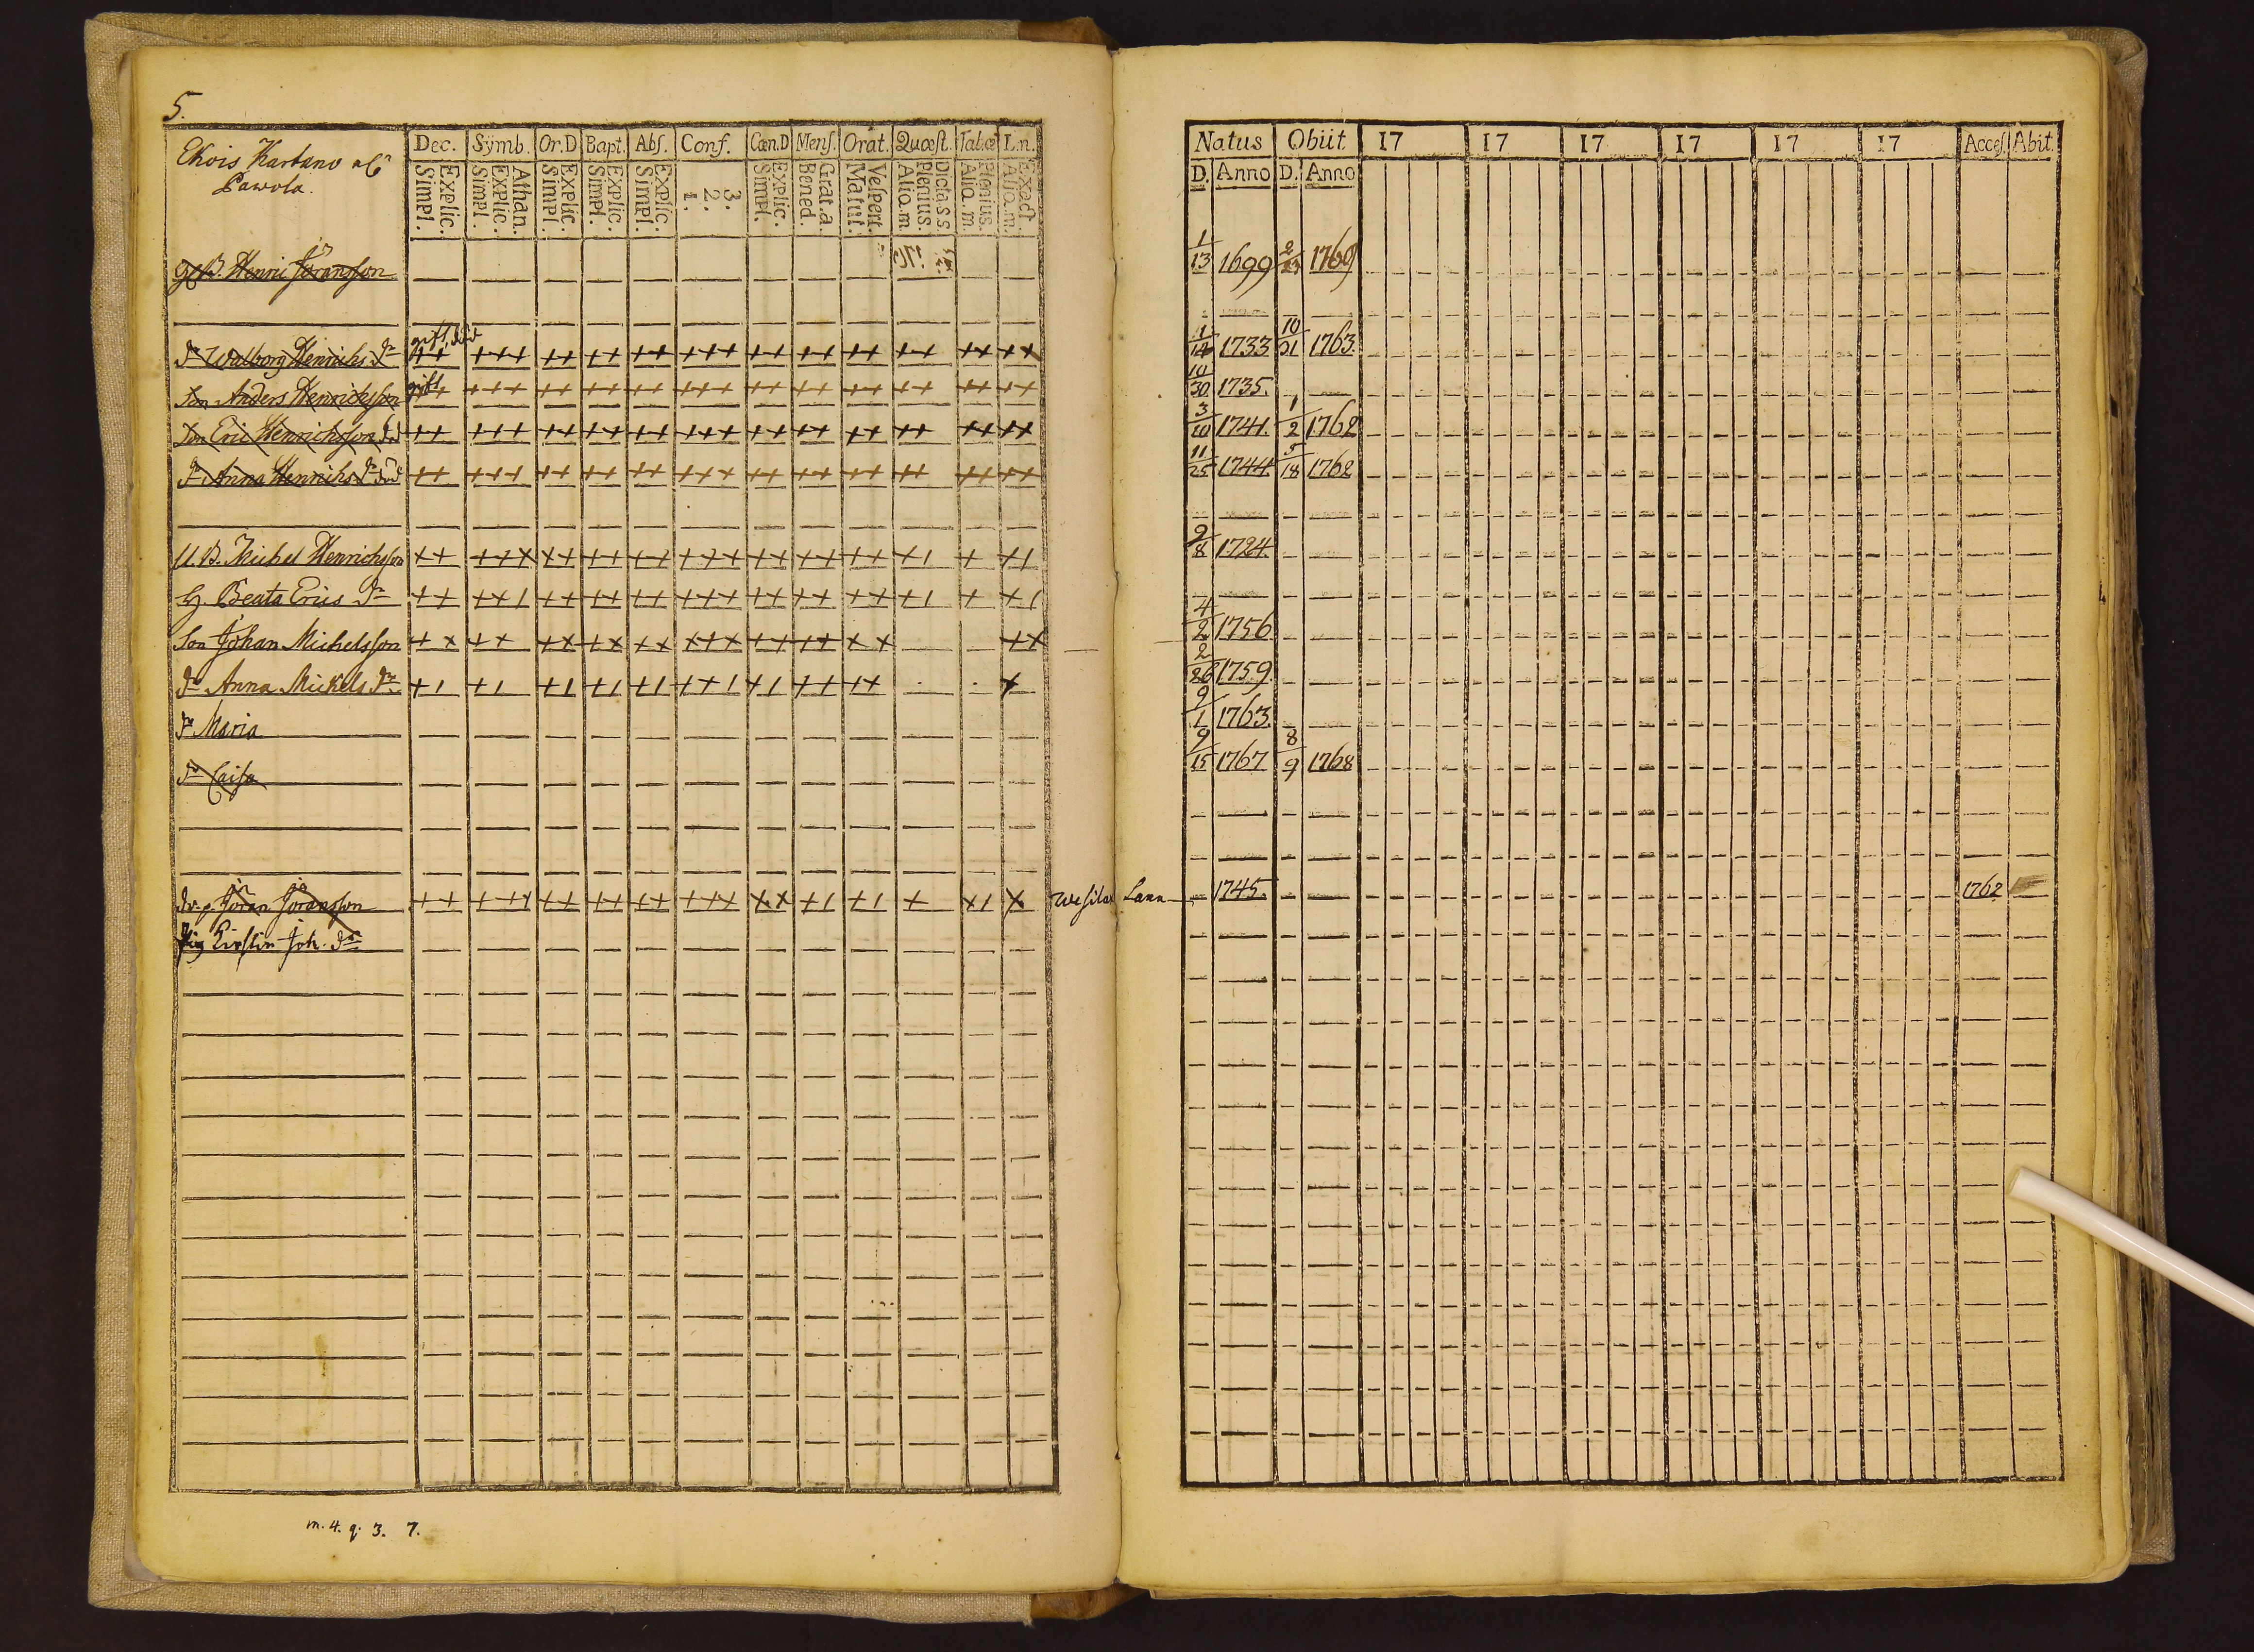 5.
Ehois Kartano al.
Pawola.
Dec. Symb. Or.D Bapt. Abs. Conf. Cœn.D Mens. Orat. Quæst. Tab.œ L.n.
Explic. Simpl. Athan. Explic. Simpl. Explic. Simpl. Explic. Simpl. Explic. Simpl. 3. 2. 1. Explic. Simpl. Grat.a. Bened. Vespert. Matut. Dicta.S.S Plenius. Aliq.m. Plenius. Aliq.m. Exact. Aliq.m.
Natus Obiit 17 17 17 17 17 17 Acces. Abit.
D. Anno D. Anno
Henric Jöransson 1/13 1699 1769
gift, död
dr Walborg Henrichs dr ++ +++ ++ ++ ++ +++ ++ ++ ++ ++ ++ ++ 1/14 1733 10/21 1763.
gift
Son Anders Henrichsson ++ +++ ++ ++ ++ +++ ++ ++ ++ ++ ++ ++ 10/30 1735.
Son Eric Henrichsson död ++ +++ ++ ++ ++ +++ ++ ++ ++ ++ ++ ++ 3/10 1741. 1/2 1762
dr Anna Henrichs dr död ++ +++ ++ ++ ++ +++ ++ ++ ++ ++ ++ ++ 11/25 1744 5/18 1762
U.B. Michel Henrichsson ++ +++ ++ ++ ++ +++ ++ ++ ++ +1 + +1 9/8 1724.
H. Beata Erics dr ++ ++1 ++ ++ ++ +++ ++ ++ ++ +1 + +1
Son Johan Michelsson ++ ++ ++ ++ ++ +++ ++ ++ ++ ++ 4/2 1756
dr Anna Mickels dr +1 +1 +1 +1 +1 ++1 +1 ++ ++ + 2/26 1759
dr Maria 9/1 1763.
dr Caisa 9/15 1767 8/9 1768
dr.p. Jöran Jöransson ++ +++ ++ ++ ++ +++ ++ +1 +1 + +1 + Wesila Lann 1745. 1762
Pig Kirstin Joh. dr
m. 4. q. 3. 7.